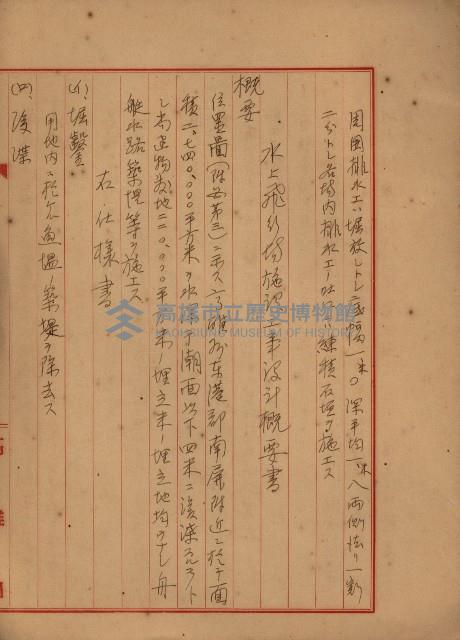 周囲排水工ハ堀放シトシ底幅一米〇 深平均一米八 両側法リ一割
二分トシ 場内排水工ハ練積石垣ヲ施工ス
水上飛行場施設工事設計概要書
概要
位置図(附図第三)ニ示ス高雄州東港郡南屏附近ニ於テ面
積二、七四〇、〇〇〇平方米ノ水面ヲ潮面以下四米ニ浚渫スルト
シ尚建物敷地二二〇、〇〇〇平方米ノ埋立 埋立地均ヲナシ舟
艇水路築堤等ヲ施工ス
右仕様書
(イ)、堀鑿
(ロ)、浚渫
用地内ニ於ケル魚塭築堤ヲ除去ス
高雄市立歷史博物館
KAOHSIUNG MUSEUM OF HISTORY